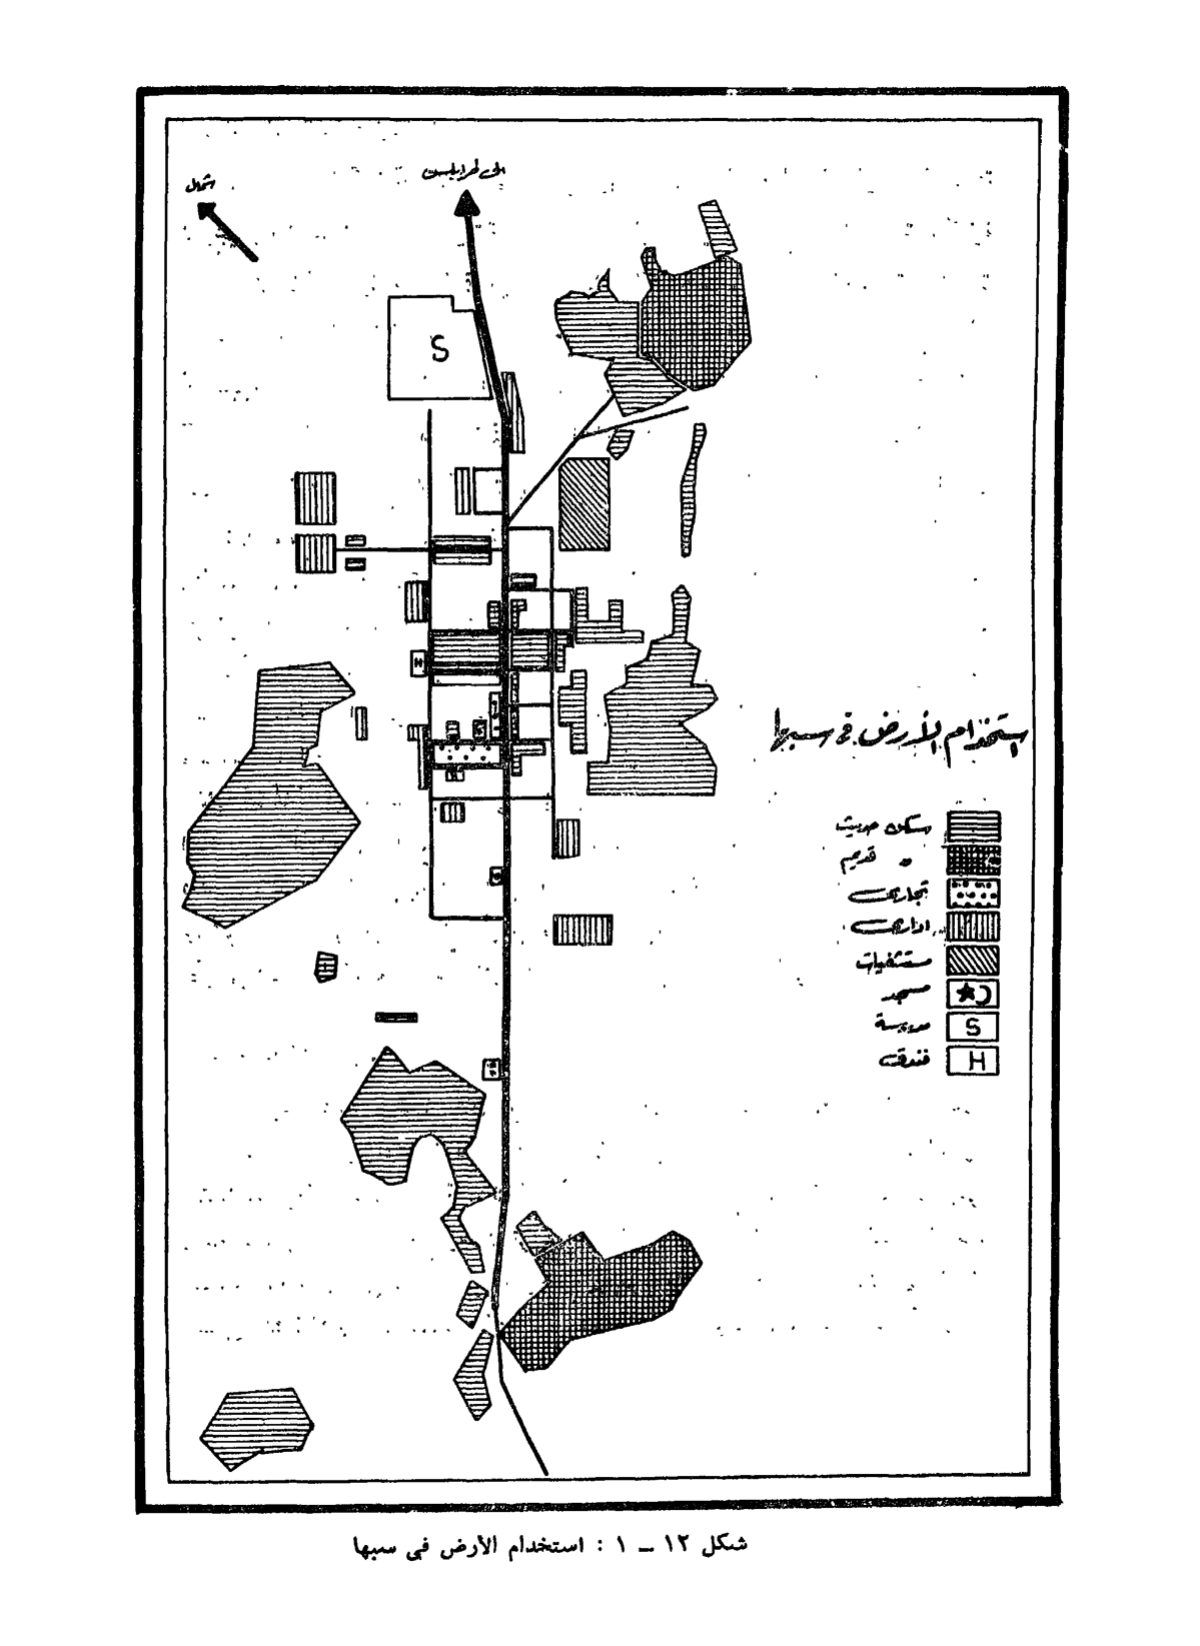 الى طرابلس
شمال
S
استخدام الأرض فى سبها
سكن حديث
" قديم
تجارى
ادارى
مستشفيات
مسجد
مدرسة
S
فندق
H
شكل ١٢ – ١ : استخدام الأرض فى سبها